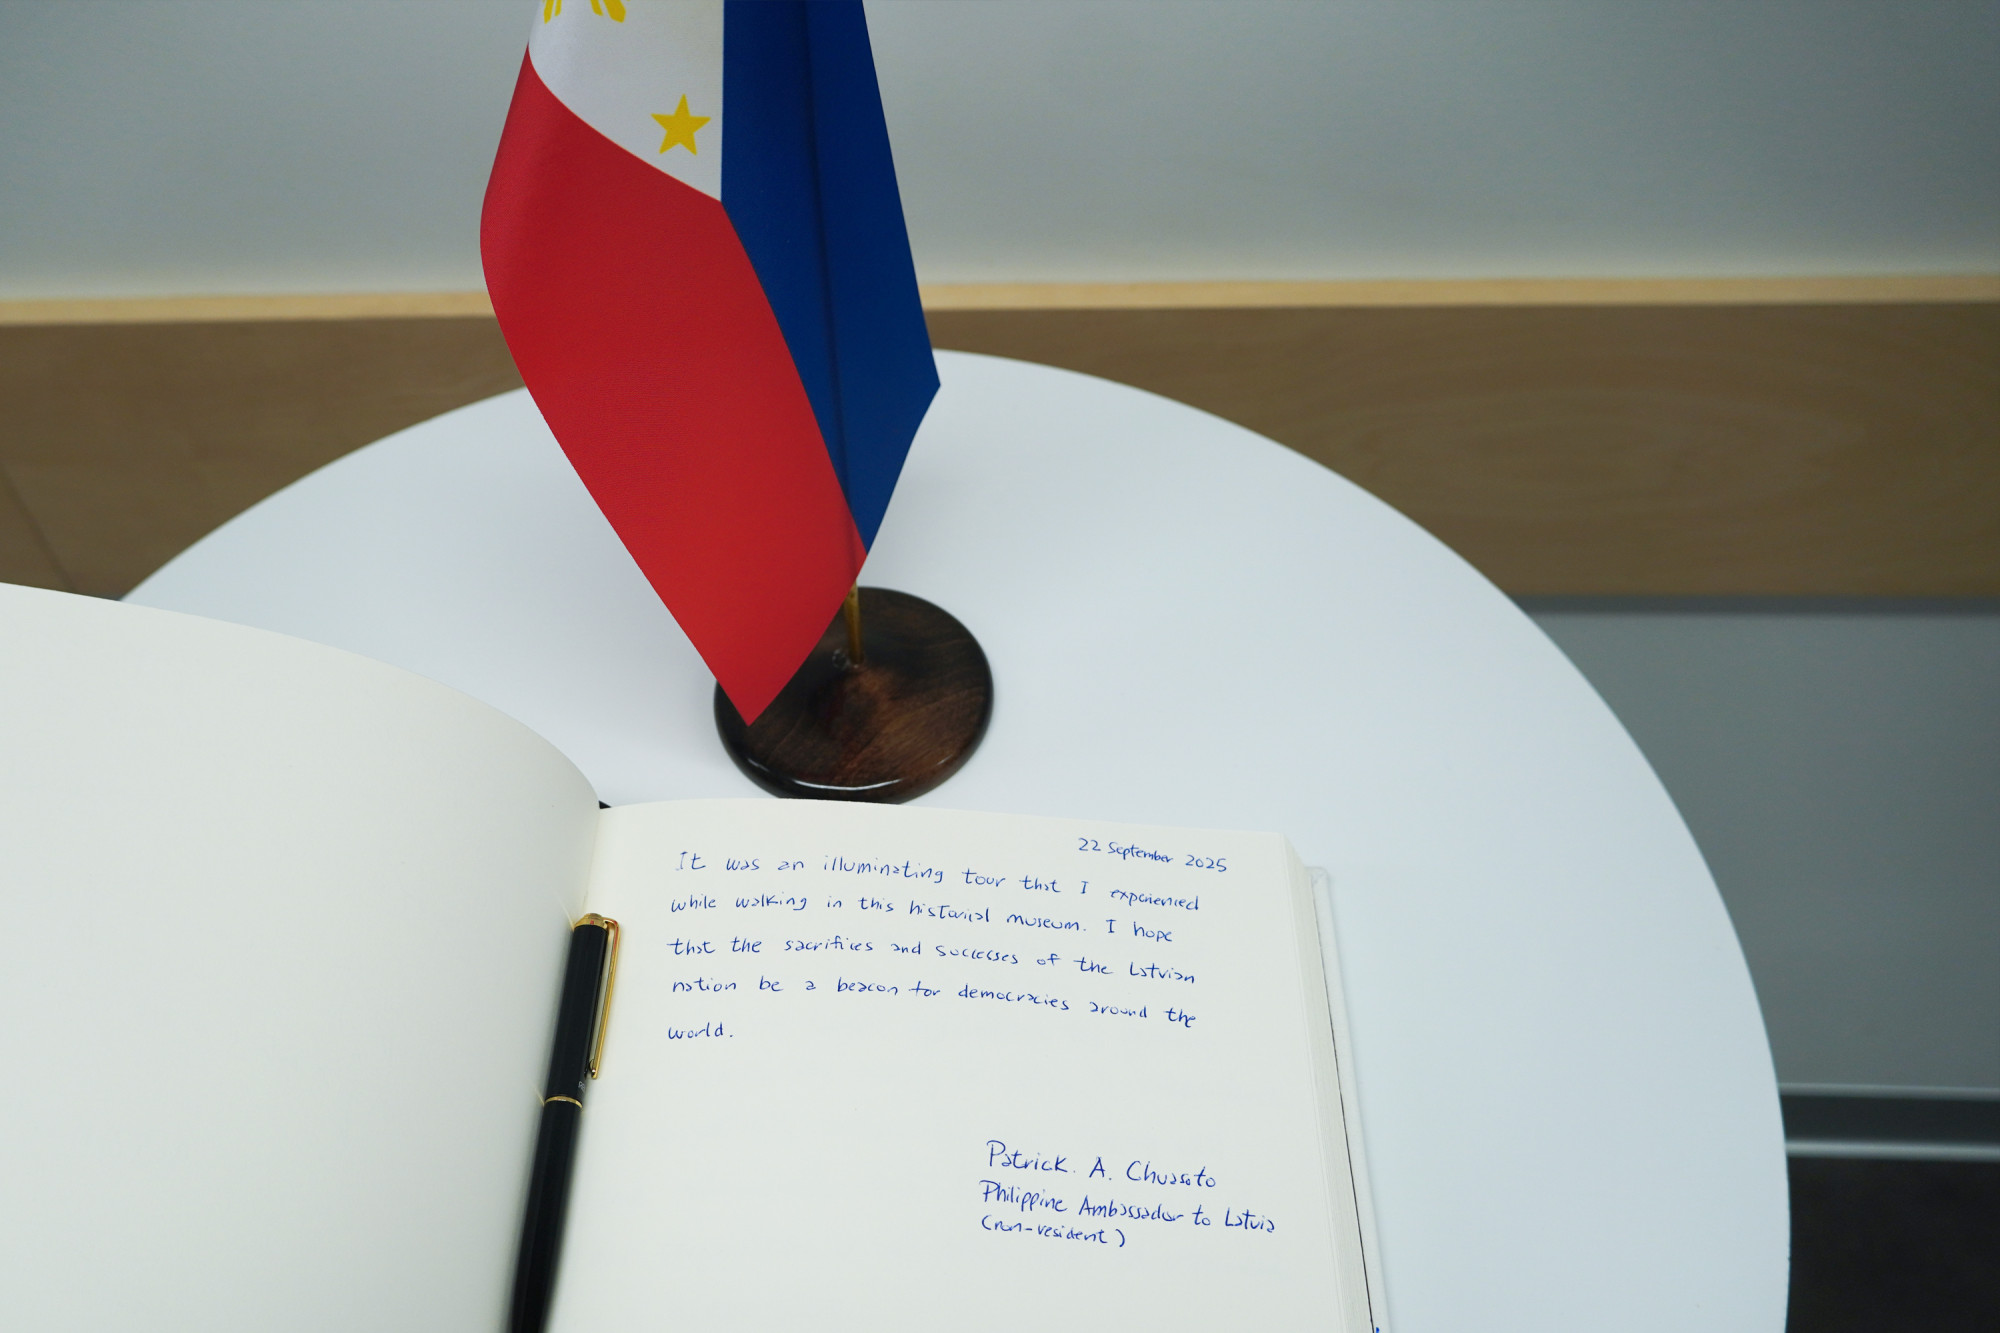 22 September 2025
It was an illuminating tour that I experienced
while walking in this historical museum. I hope
that the sacrifices and successes of the Latvian
nation be a beacon for democracies around the
world.
Patrick. A. Chuasoto
Philippine Ambassador to Latvia
(non-resident)